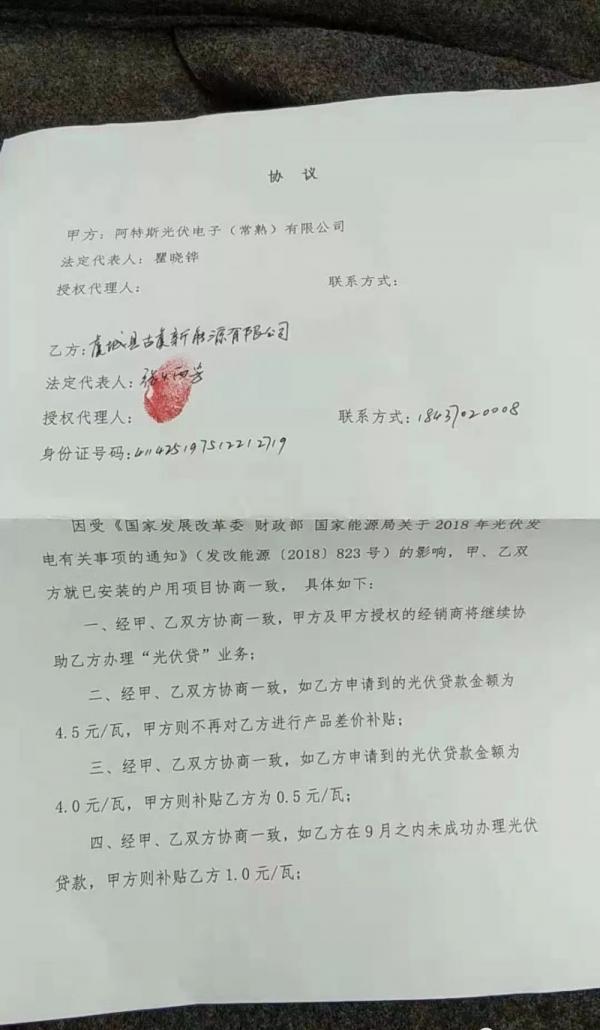 协 议
甲方：阿特斯光伏电子（常熟）有限公司
法定代表人：瞿晓铧
授权代理人：
联系方式：
乙方：虞城县古虞新能源有限公司
法定代表人：
授权代理人：
联系方式：18437020008
身份证号码：411425197512212719
因受《国家发展改革委 财政部 国家能源局关于2018年光伏发
电有关事项的通知》（发改能源〔2018〕823号）的影响，甲、乙双
方就已安装的户用项目协商一致， 具体如下：
一、经甲、乙双方协商一致，甲方及甲方授权的经销商将继续协
助乙方办理“光伏贷”业务；
二、经甲、乙双方协商一致，如乙方申请到的光伏贷款金额为
4.5元/瓦，甲方则不再对乙方进行产品差价补贴；
三、经甲、乙双方协商一致，如乙方申请到的光伏贷款金额为
4.0元/瓦，甲方则补贴乙方为0.5元/瓦；
四、经甲、乙双方协商一致，如乙方在9月之内未成功办理光伏
贷款，甲方则补贴乙方1.0元/瓦；